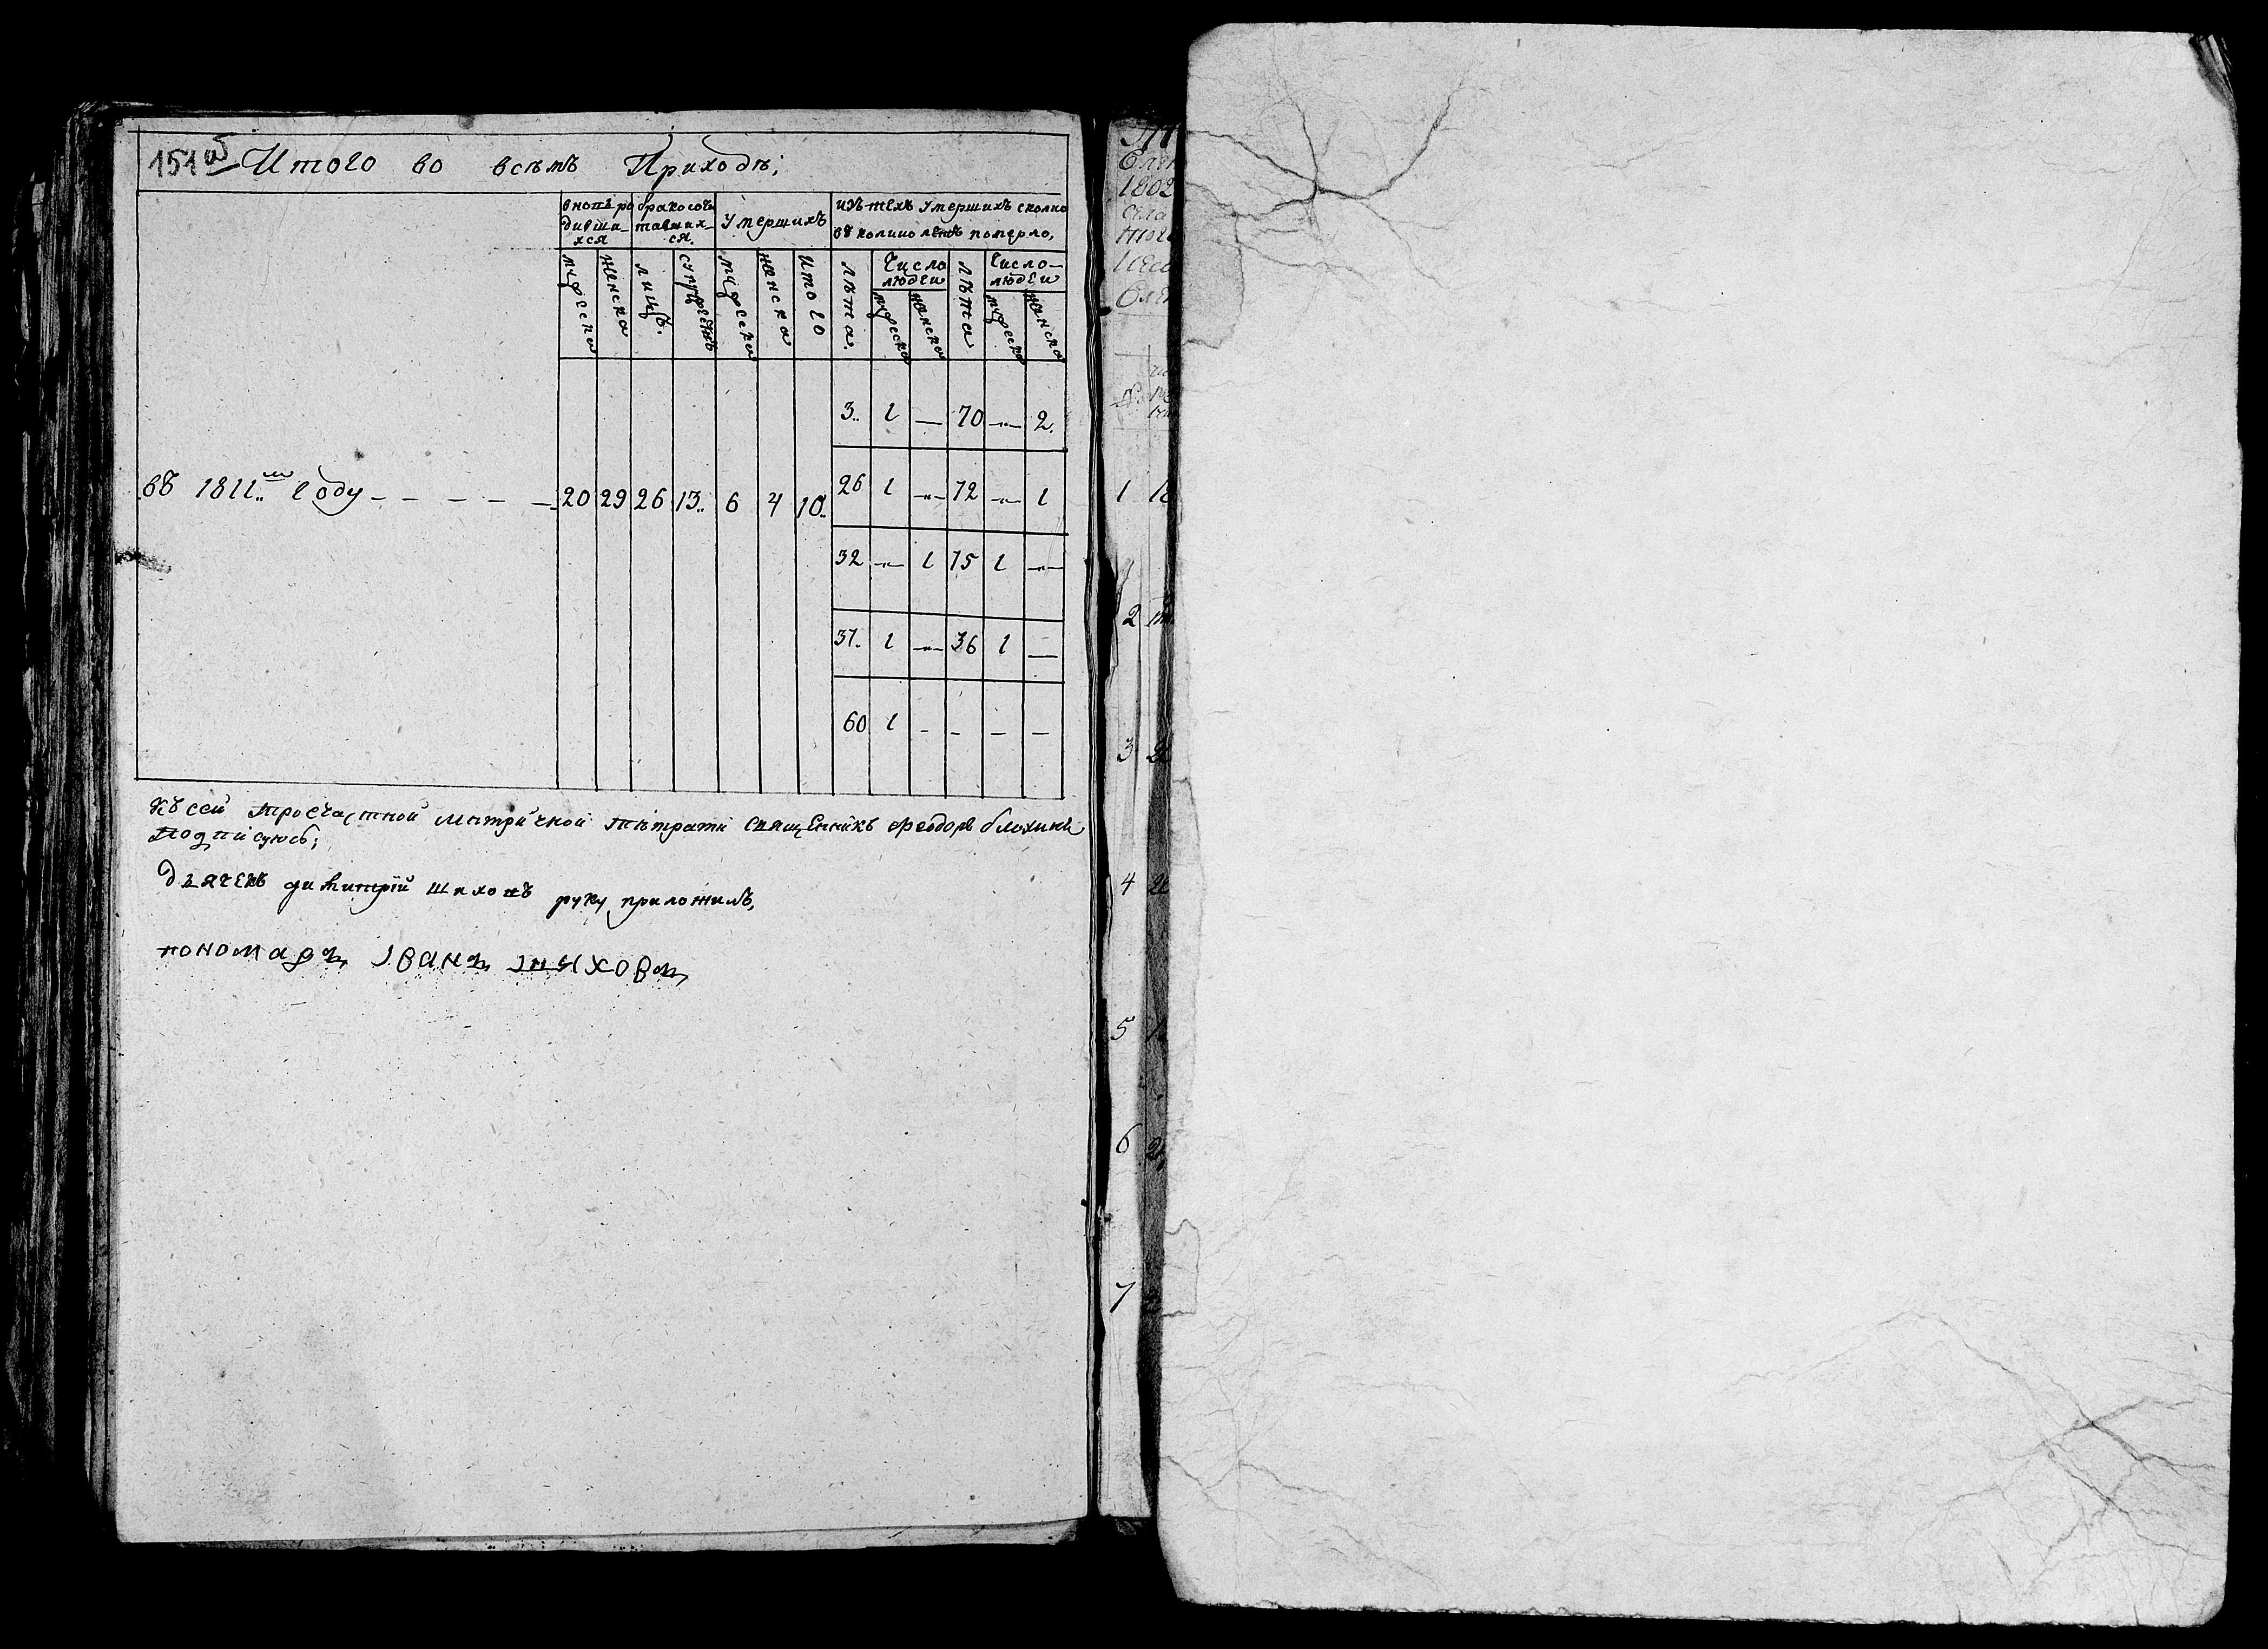 151об Итого во всѣмъ Приходѣ;
вновь ро
дивши_
хся
бракосоче
тавших_
ся.
умершихъ
изъ техъ умершихъ сколко
въ колико летъ померло,
мужеска
женска
лицъ.
супружествъ
мужеска
женска
итого
лѣта.
Число
людеи
мужеска
женска
лѣта
Число_
людеи
мужеска
женска
3.. 1 — 70 -"- 2.
въ 1811..м году - - - - - 20 29 26 13.. 6 4 10..
26 1 -"- 72 -"- 1
32 -"- 1 75 1 -"-
37. 1 -"- 36 1 —
60 1 - - - -
Къ сей троечастной метричной тетрати священикъ феодоръ блохинъ
подписуюсь;
дьячекъ димитрий шаховъ руку приложилъ,
пономарь Iванъ шыховъ
1802
1
2
3
4
5
6
7